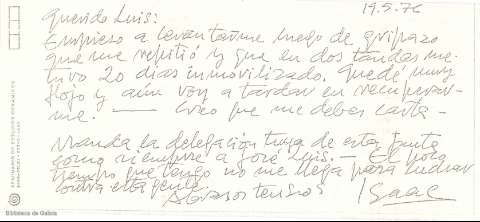 19.5.76
Querido Luis:
Empieso a levantarme luego de gripazo
que me repitió y que en dos tandas me
tuvo 20 dias inmovilizado. Quedé muy
flojo y aún voy a tardar en recuperar-
me. — Creo que me debes carta —
Manda la delegación tuya de esta Xunta
como siempre a José Luis. — El poco
tiempo que tengo no me llega para luchar
contra esta gente.
Abrazos tensos Isaac
Biblioteca de Galicia